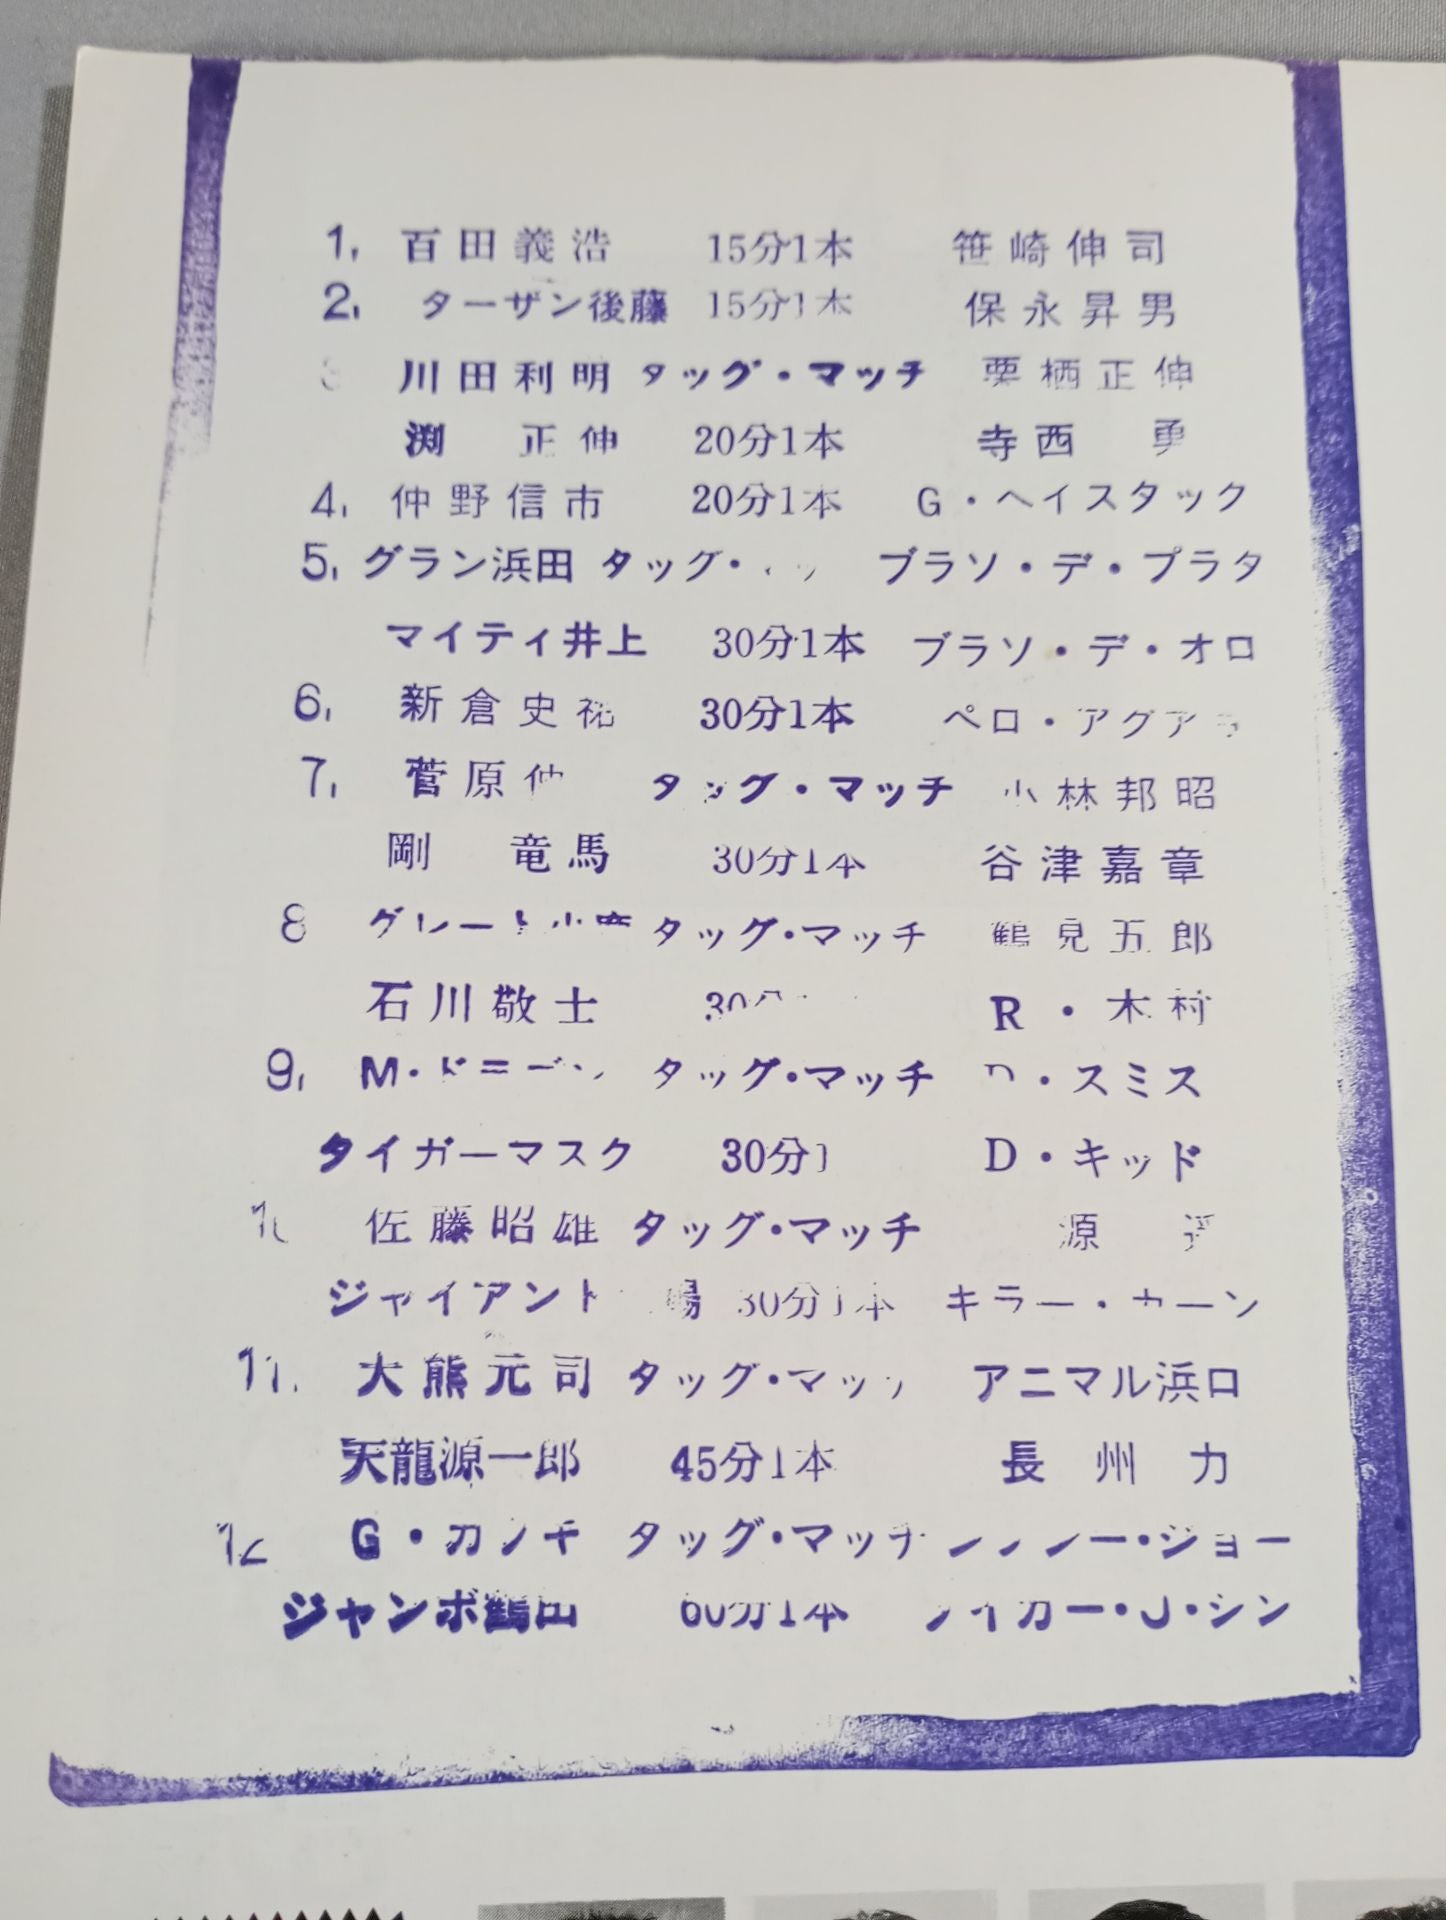 1, 百田義浩 15分1本 笹崎伸司
2, ターザン後藤 15分1本 保永昇男
3 川田利明 タッグ・マッチ 栗栖正伸
渕 正伸 20分1本 寺西 勇
4, 仲野信市 20分1本 G・ヘイスタック
5, グラン浜田 タッグ・ ブラソ・デ・プラタ
マイティ井上 30分1本 ブラソ・デ・オロ
6, 新倉史祐 30分1本 ペロ・アグアヨ
7, 菅原伸 タッグ・マッチ 小林邦昭
剛 竜馬 30分1本 谷津嘉章
8 グレート小鹿 タッグ・マッチ 鶴見五郎
石川敬士 30分 R・木村
9, M・ドーナン タッグ・マッチ D・スミス
タイガーマスク 30分1 D・キッド
10 佐藤昭雄 タッグ・マッチ 源
ジャイアント 場 30分1本 キラー・カーン
11, 大熊元司 タッグ・マッチ アニマル浜口
天龍源一郎 45分1本 長州 力
12 G・カブキ タッグ・マッチ ・ジョー
ジャンボ鶴田 60分1本 タイガー・J・シン